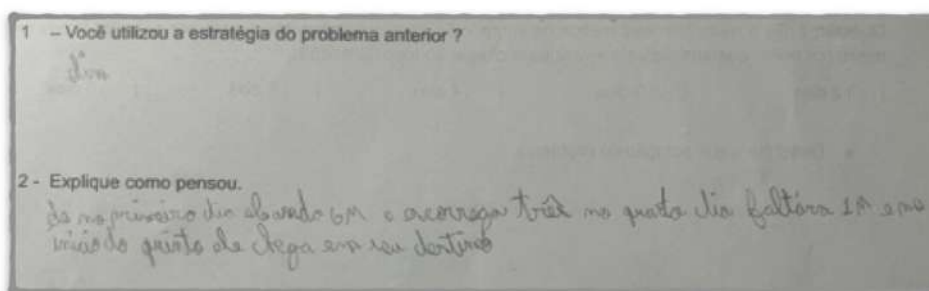 1 – Você utilizou a estratégia do problema anterior ?
Sim
2 - Explique como pensou.
se no primeiro dia ele anda 6M e escorrega três no quarto dia faltara 1M e no
inicio do quinto ele chega em seu destino